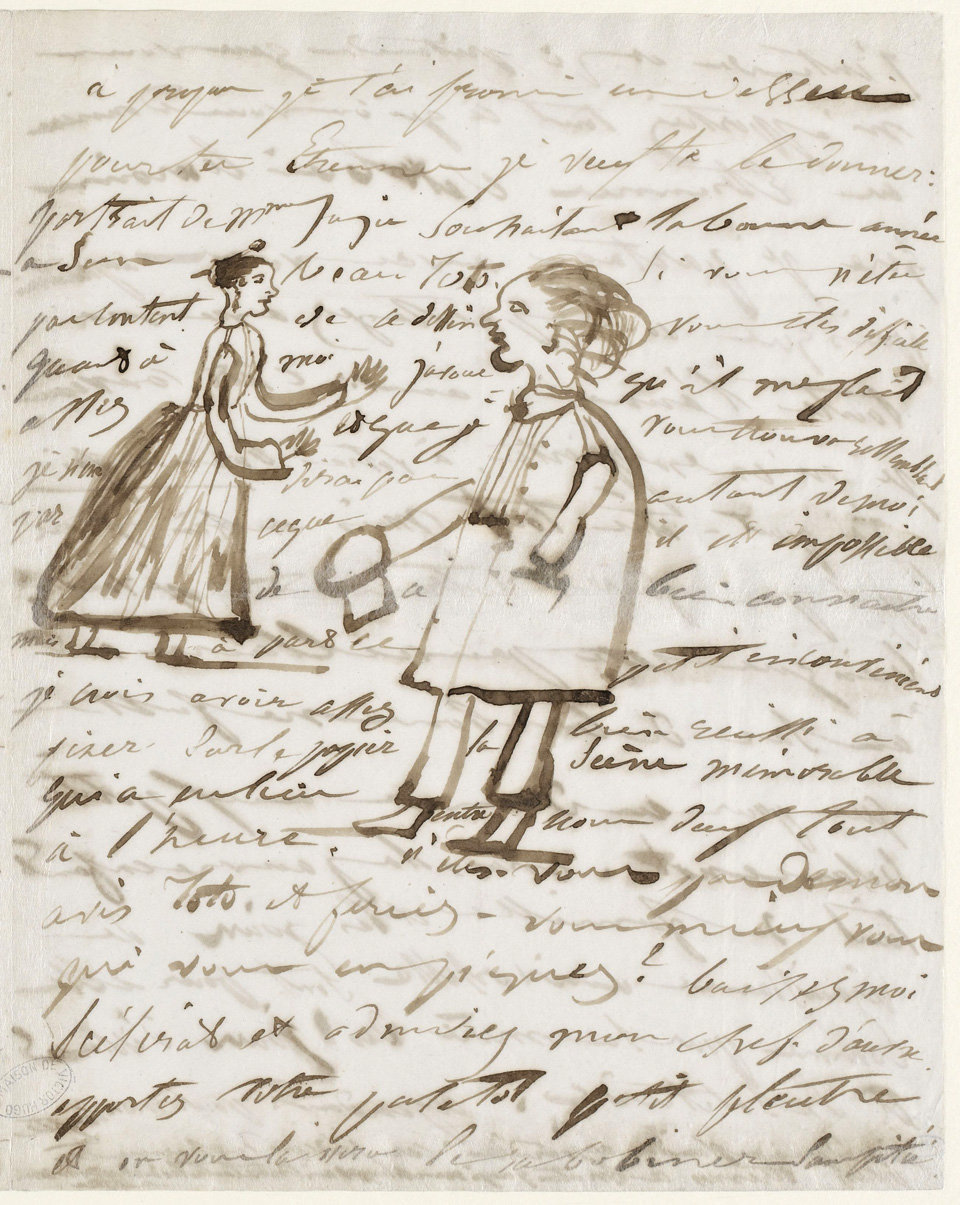 à propos je t'ai promis un dessin
pour tes Étrennes je veux te le donner:
portrait de Mme Juju souhaitant la bonne année
à Son beau Toto. Si vous n'êtes
pas content de ce dessin vous êtes difficile
quant à moi j'avoue qu'il me plait
assez et que je vous trouve ressemblant
je ne dirai pas autant de moi
par ce que il est impossible
de se bien connaître
mais à part ce petit inconvénient
je crois avoir assez bien réussi à
fixer sur le papier la Scène mémorable
qui a eu lieu entre nous deux tout
à l'heure. n'êtes-vous pas de mon
avis Toto, et feriez-vous mieux vous
qui vous en piquez? baisez moi
Scélérat et admirez mon chef d'œuvre
apportez votre petit plâtre
et on vous la sans pitié
MAISON DE VICTOR HUGO